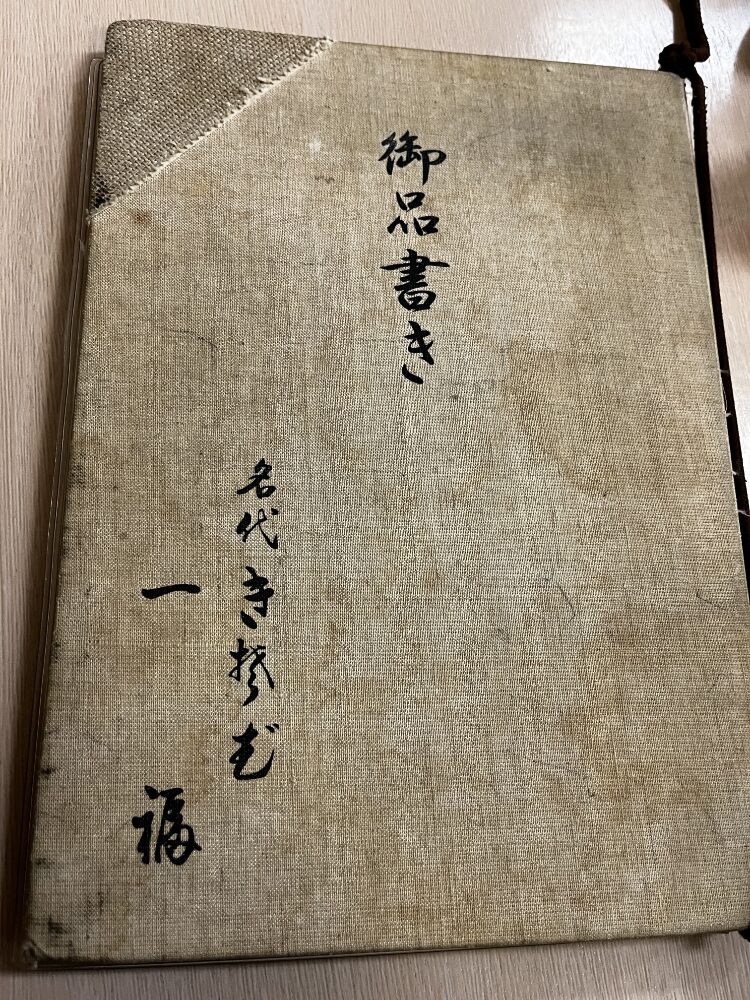 御品書き
名代 き楚む
一福